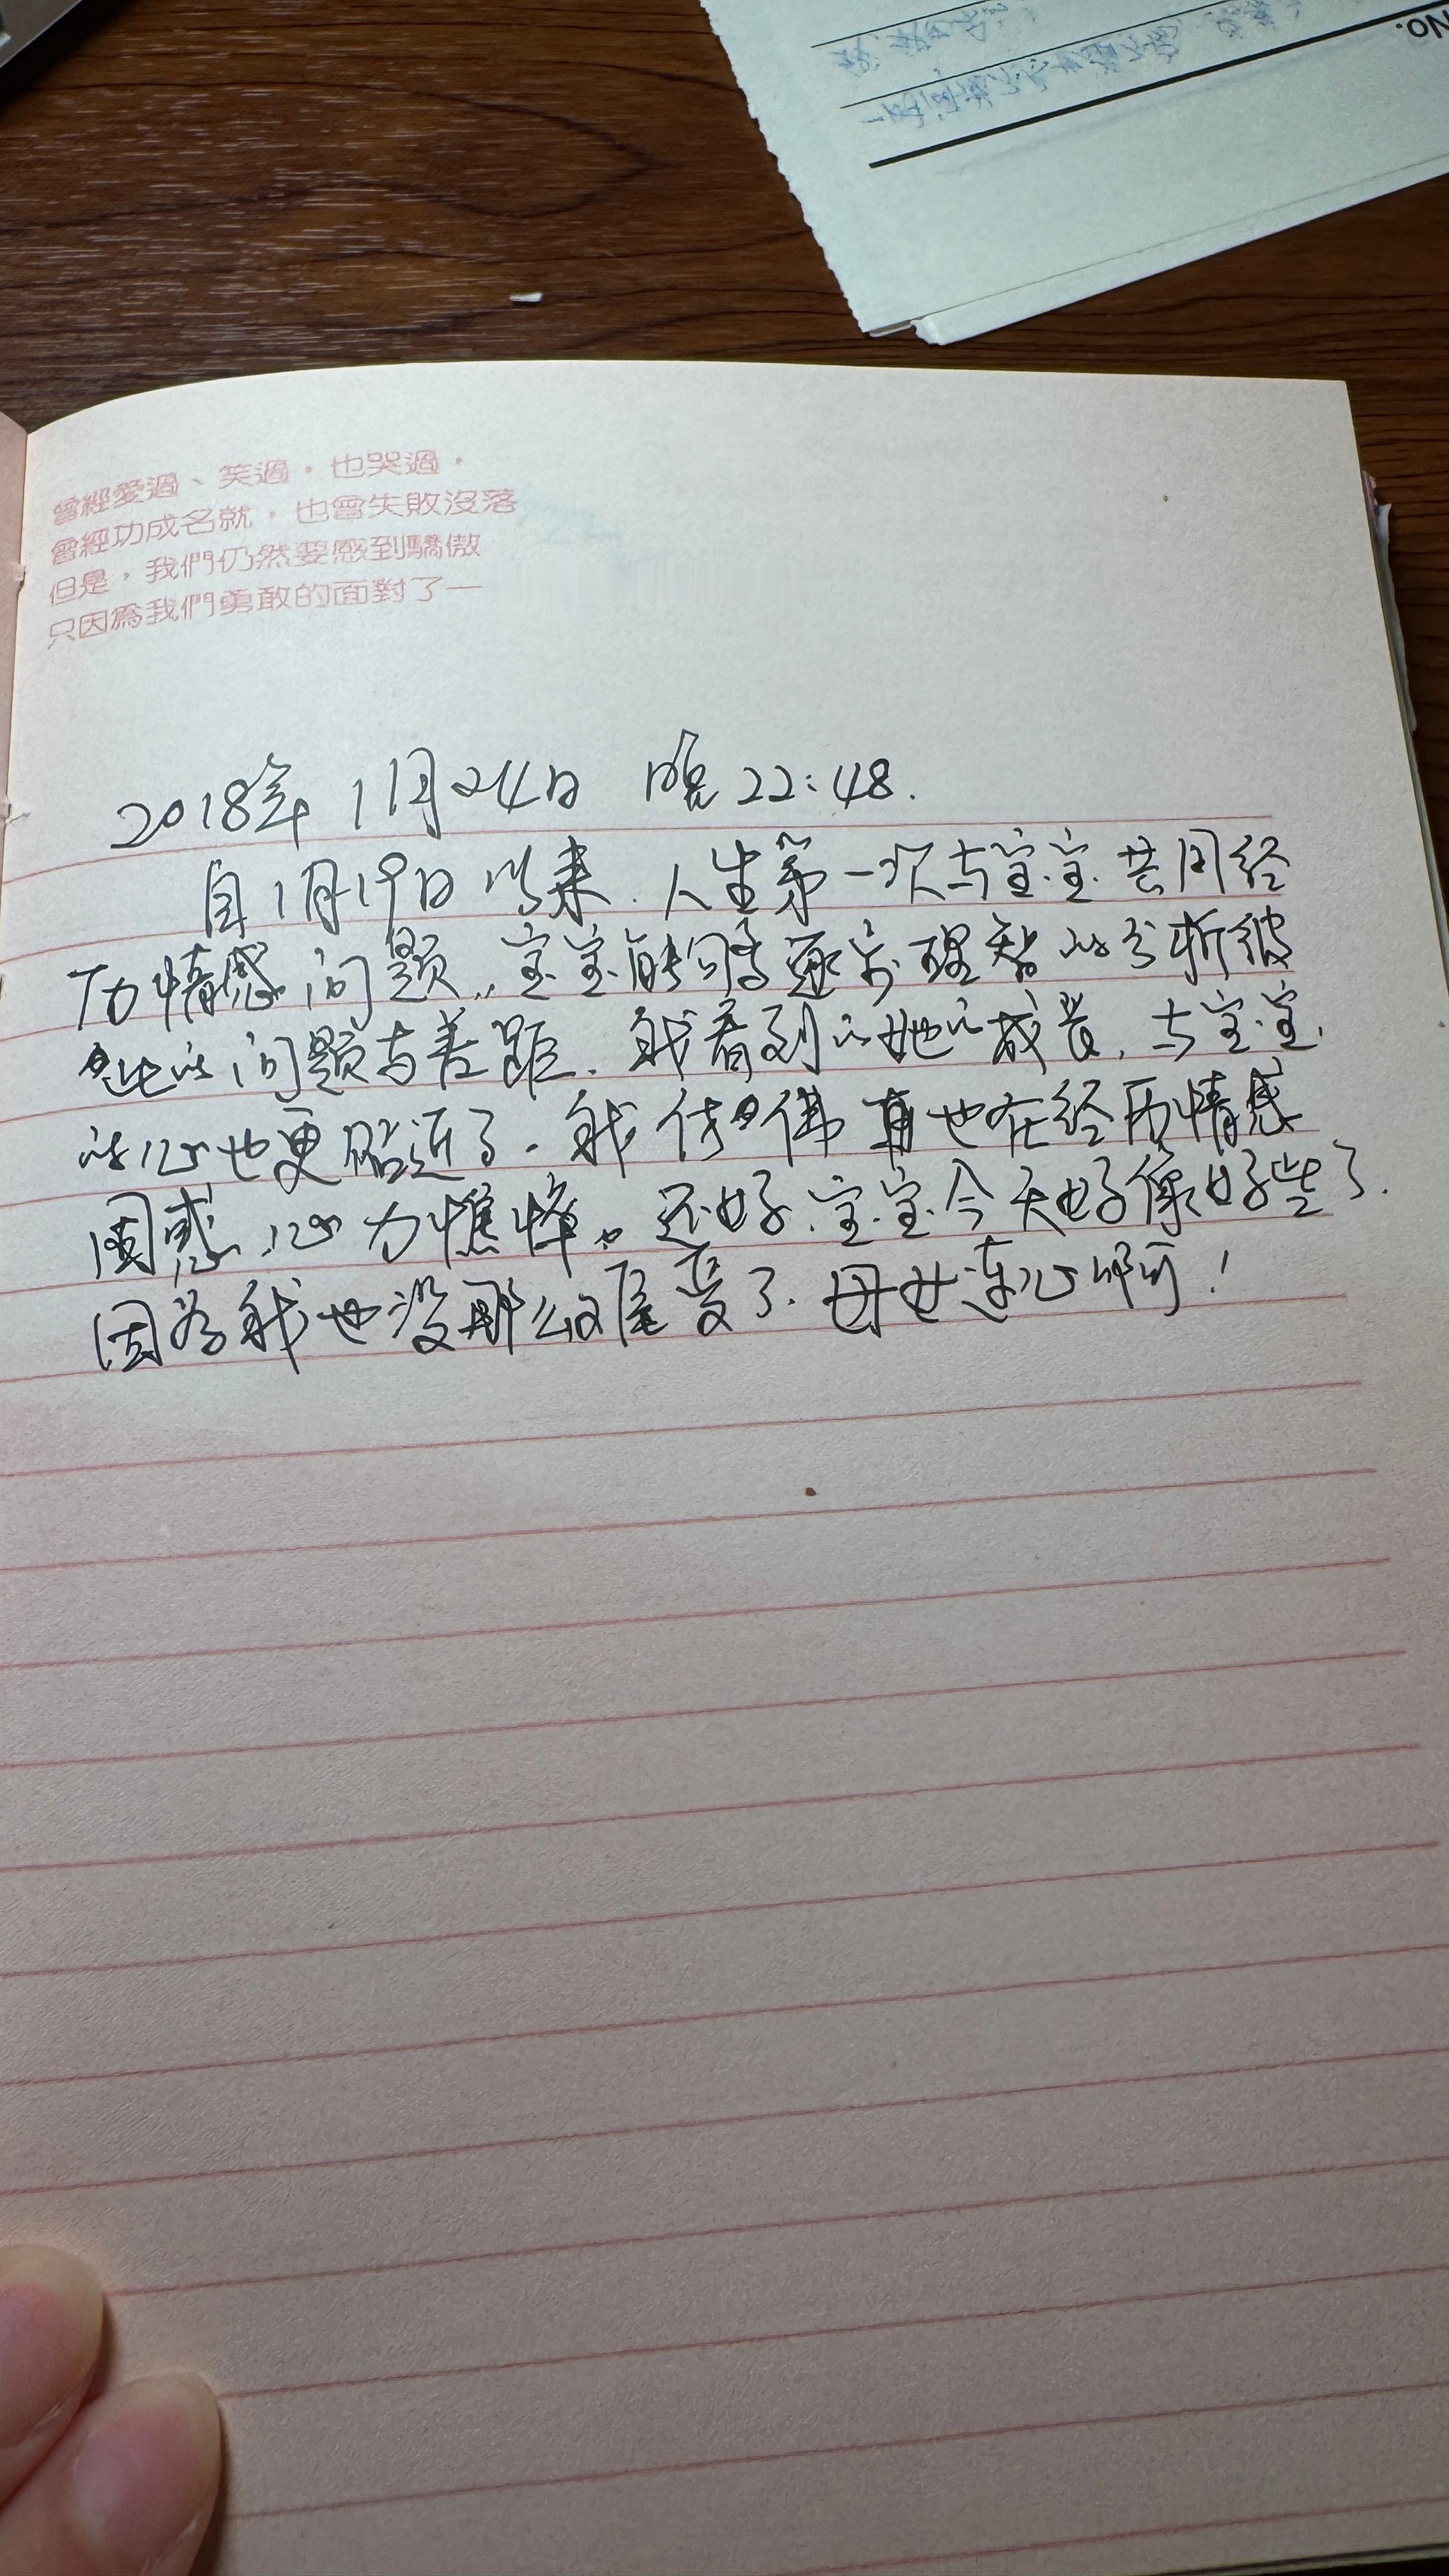 No.
曾經愛過、笑過，也哭過，
曾經功成名就，也會失敗沒落
但是，我們仍然要感到驕傲
只因為我們勇敢的面對了一
2018年1月24日 晚22:48.
自1月19日以来.人生第一次与宝宝共同经
历情感问题,,宝宝能够逐步理智的分析彼
此的问题与差距.我看到了她的成长,与宝宝
的心也更贴近了.我仿佛再也在经历情感
困惑,心力憔悴。还好.宝宝今天好像好些了.
因为我也没那么难受了.母女连心啊!